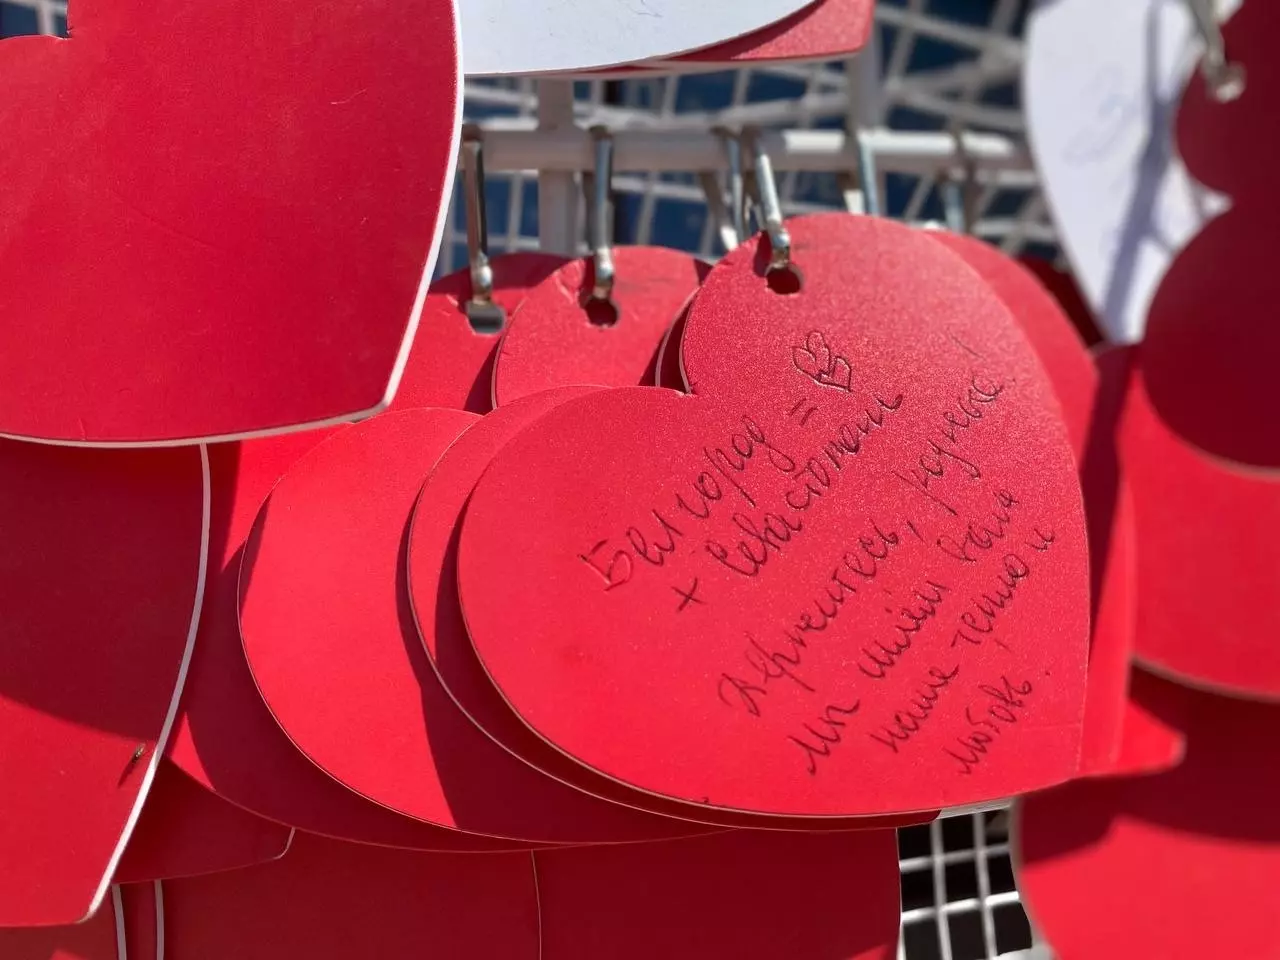 Белгород = 
+ Севастополь
Держитесь, родные!
Мы шлём вам
наше тепло и
любовь.